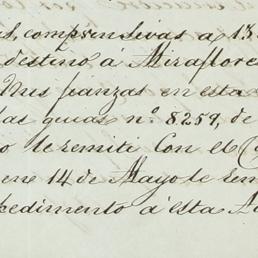 comprensivas a 13
destino, á Miraflore
Mis fianzas en esta
las guias n.º 8259, de
o le remití con el
ene 14 de Mayo de
pedimento á esta A